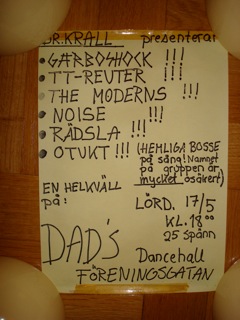 DR.KRALL presenterar
GARBOSHOCK !!!
TT-REUTER !!!
THE MODERNS !!!
NOISE !!!
RÄDSLA !!!
OTUKT !!! (HEMLIGA BOSSE
på sång! Namnet
på gruppen är
mycket osäkert)
EN HELKVÄLL
på:
LÖRD. 17/5
KL. 18 00
25 Spänn
DAD's
Dancehall
FÖRENINGSGATAN